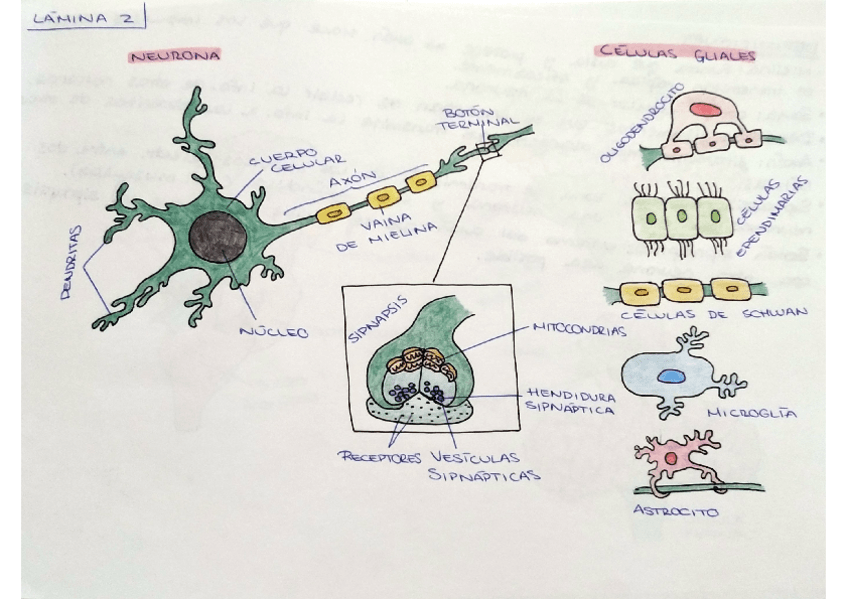 LÁMINA 2
NEURONA
CÉLULAS GLIALES
BOTÓN
TERMINAL
CUERPO
CELULAR
AXÓN
VAINA
DE MIELINA
DENDRITAS
NÚCLEO
SIPNAPSIS
MITOCONDRIAS
HENDIDURA
SIPNÁPTICA
RECEPTORES
VESÍCULAS
SIPNÁPTICAS
OLIGODENDROCITO
CÉLULAS
EPENDIMARIAS
CÉLULAS DE SCHWAN
MICROGLÍA
ASTROCITO